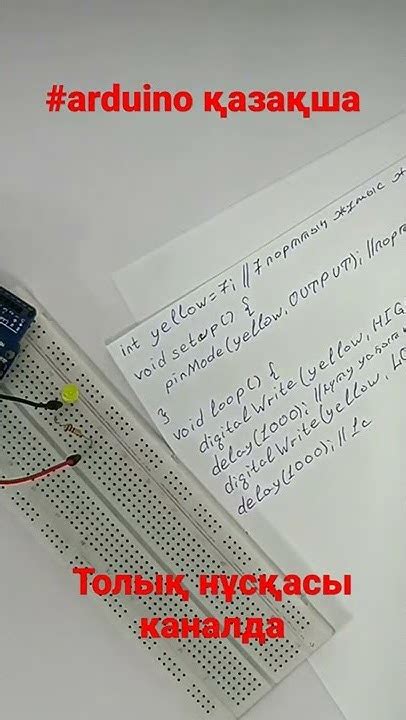 #arduino қазақша
int yellow=7; // 7 портттың жұмыс
void setup() {
pinMode(yellow, OUTPUT); //порт
}
void loop() {
digitalWrite(yellow, HIG
delay(1000); //күту уақыты
digitalWrite(yellow, LO
delay(1000); // 1с
Толық нұсқасы
каналда